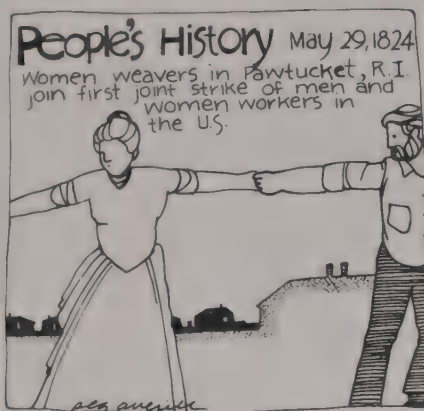 People's History May 29, 1824
Women weavers in Pawtucket, R.I.
join first joint strike of men and
women workers in
the U.S.
peg averill